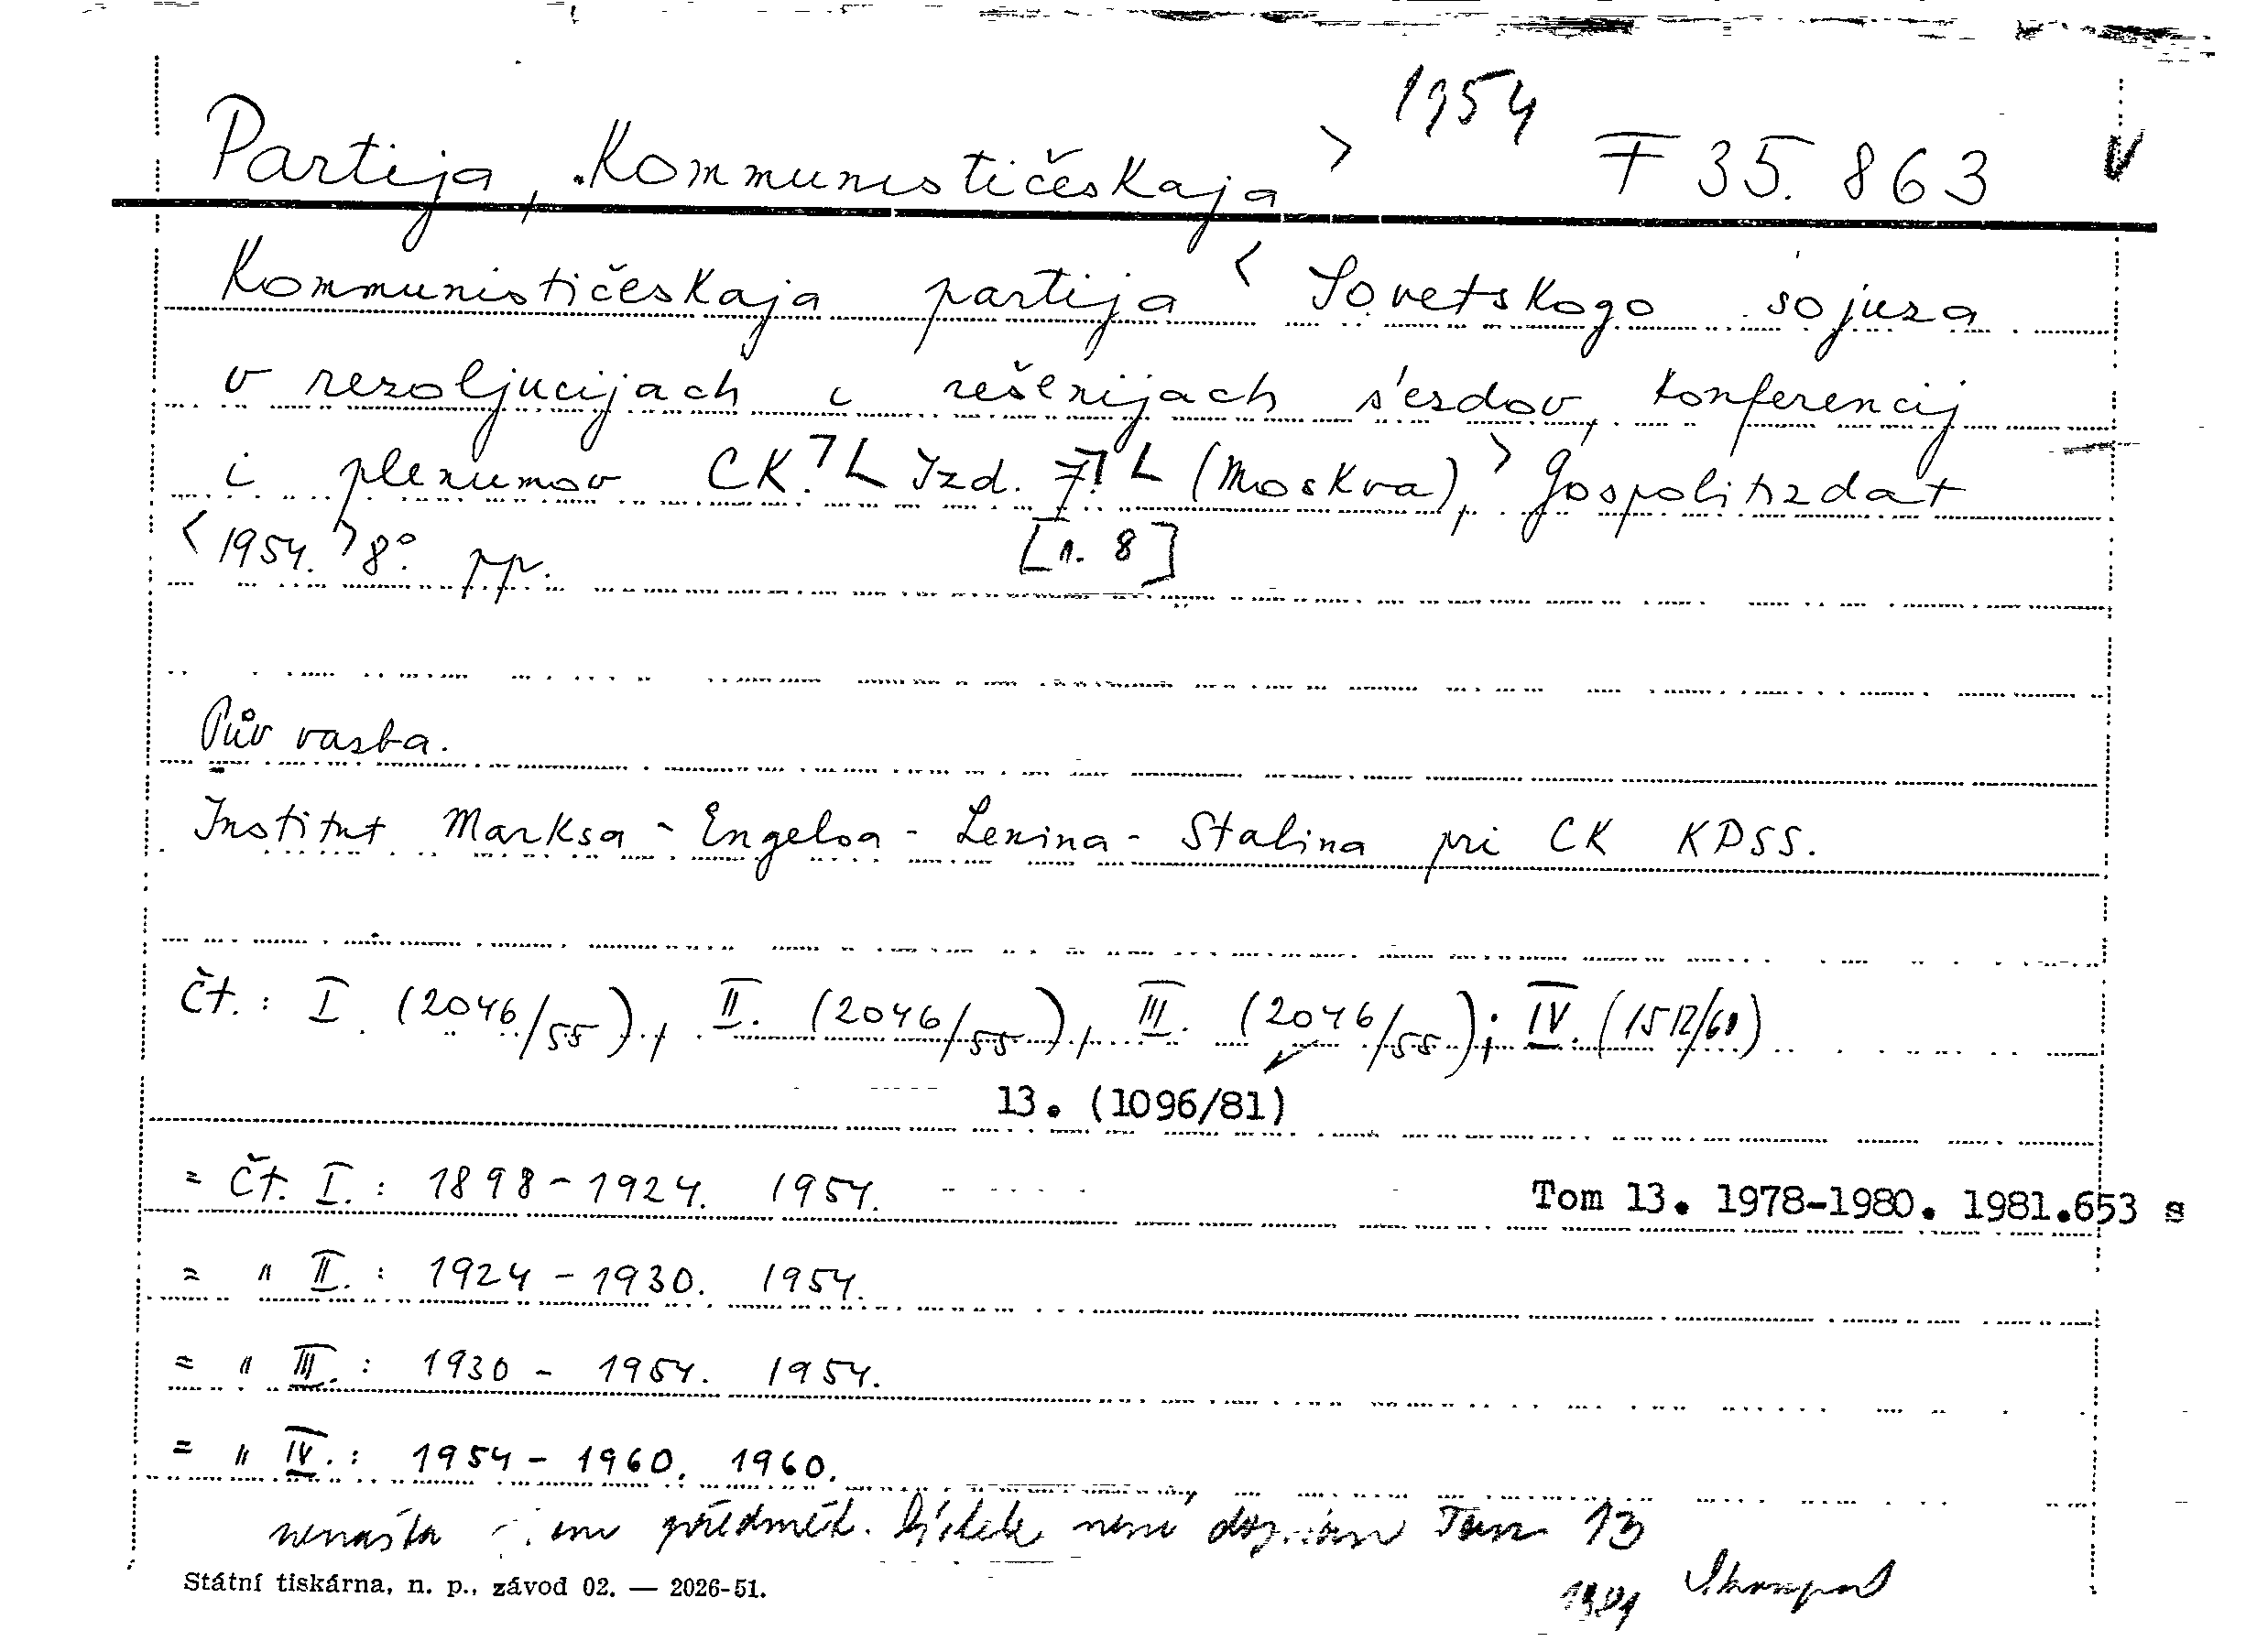 Partija, Kommunističeskaja > 1954 F 35.863 V
Kommunističeskaja partija < Sovetskogo sojuza
v rezoljucijach i rešenijach s'ezdov, konferencij
i plenumov CK. Izd. 7. (Moskva), > Gospolitizdat
< 1954. > 8° pp. [n. 8]
Pův vazba.
Institut Marksa - Engelsa - Lenina - Stalina pri CK KPSS.
Čt.: I. (2046/55), II. (2046/55), III. (2046/55); IV. (1512/60)
13. (1096/81)
= Čt. I.: 1898-1924. 1954.
Tom 13. 1978-1980. 1981.653 s
= " II.: 1924-1930. 1954.
= " III.: 1930 - 1954. 1954.
= " IV.: 1954-1960. 1960.
předmět. lístek není Tom 13
Státní tiskárna, n. p., závod 02. — 2026-51.